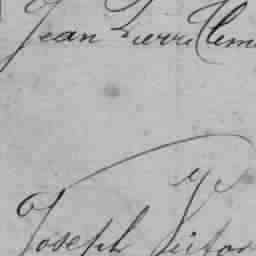 Jean Pierre Clem
Joseph Victor